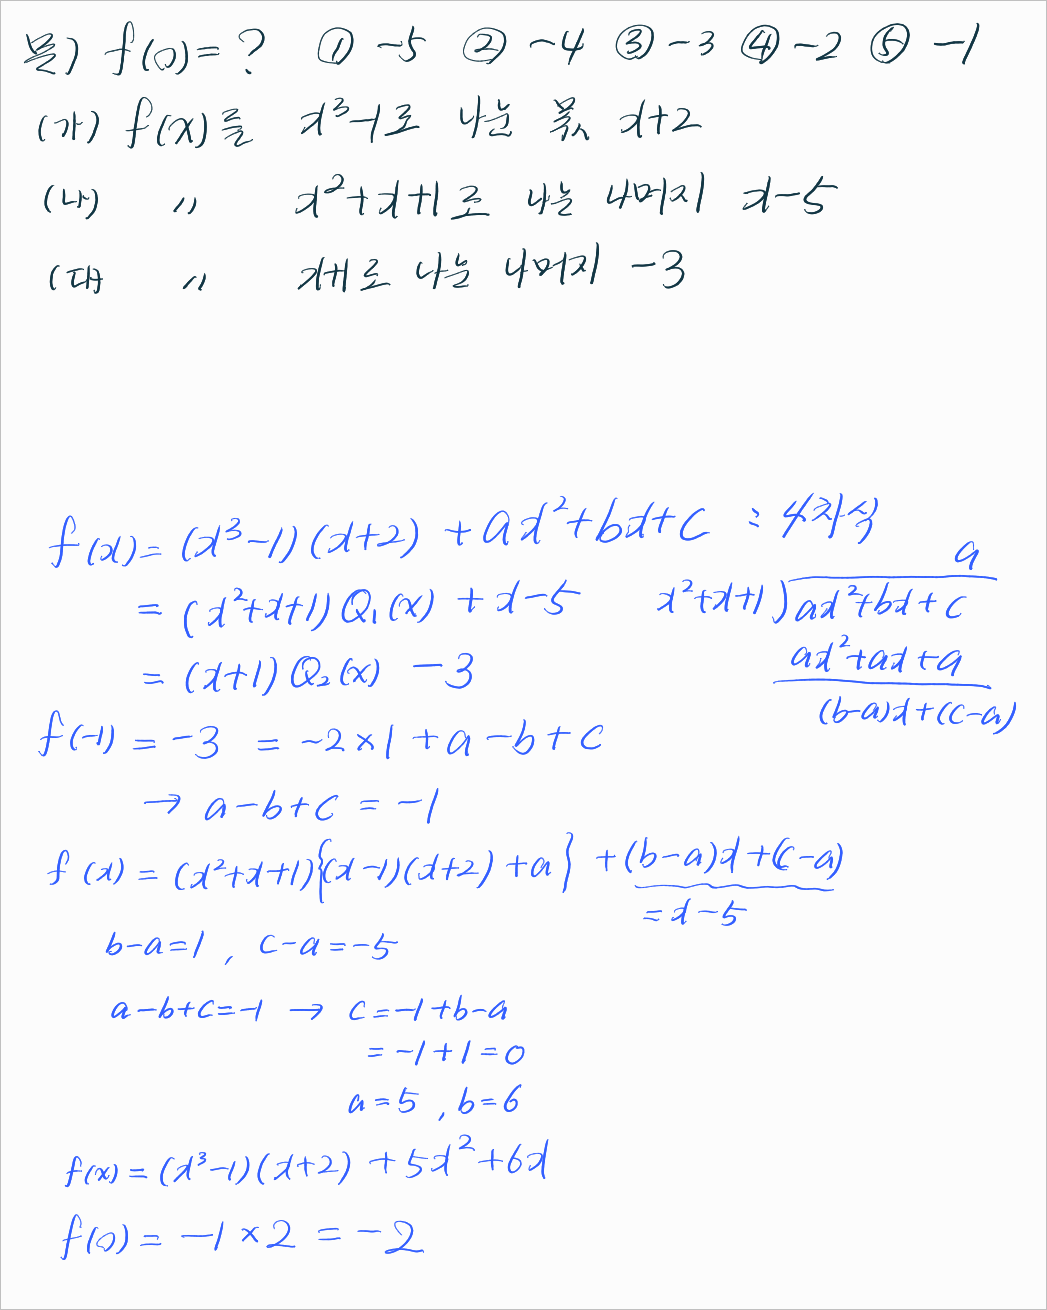 문) f(0)=? ① -5 ② -4 ③ -3 ④ -2 ⑤ -1
(가) f(x)를 x³-1로 나눈 몫 x+2
(나) 〃 x²+x+1로 나눈 나머지 x-5
(다) 〃 x+1로 나눈 나머지 -3
f(x)= (x³-1)(x+2)+ax²+bx+c : 4차식
= (x²+x+1)Q₁(x)+x-5
= (x+1)Q₂(x) -3
a
x²+x+1)ax²+bx+c
ax²+ax+a
(b-a)x+(c-a)
f(-1) = -3 = -2×1+a-b+c
→ a-b+c = -1
f(x) = (x²+x+1){(x-1)(x+2)+a} +(b-a)x+(c-a)
=x-5
b-a=1 , c-a=-5
a-b+c=-1 → c=-1+b-a
=-1+1=0
a=5 , b=6
f(x)=(x³-1)(x+2)+5x²+6x
f(0)= -1×2 = -2